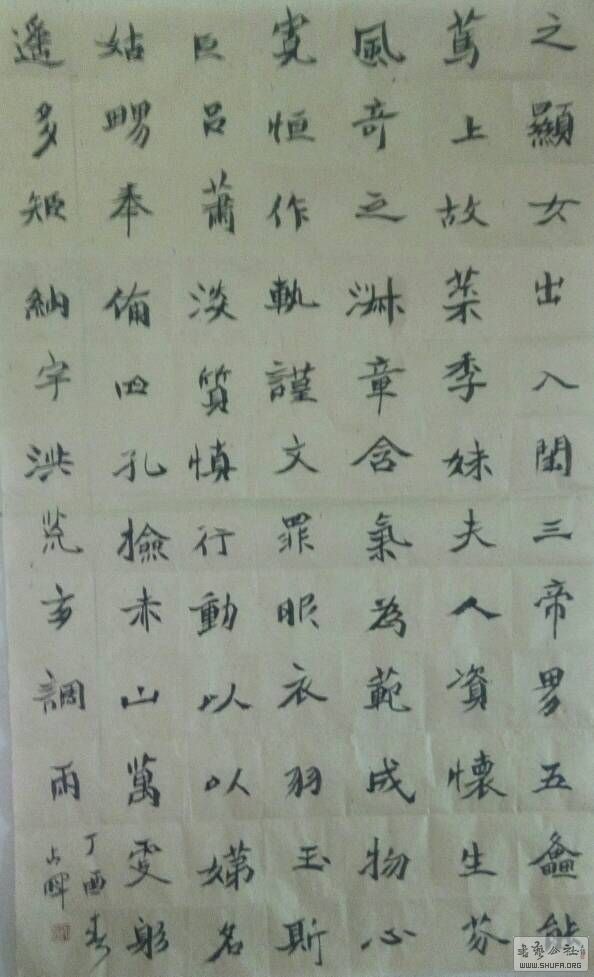 之顯女出入閨三帝男五
上故葉季妹夫人資懷生芬
風奇之淋章含氣為範成物心
寬恒作執謹文罪眼衣羽玉斯
巨呂蕭淡質慎行動以以娣名
姑賜奉備四孔撿未山萬雯躬
遥多矩納宇洪荒亥調雨
丁酉春
占暉
書藝公社
WWW.SHUFA.ORG